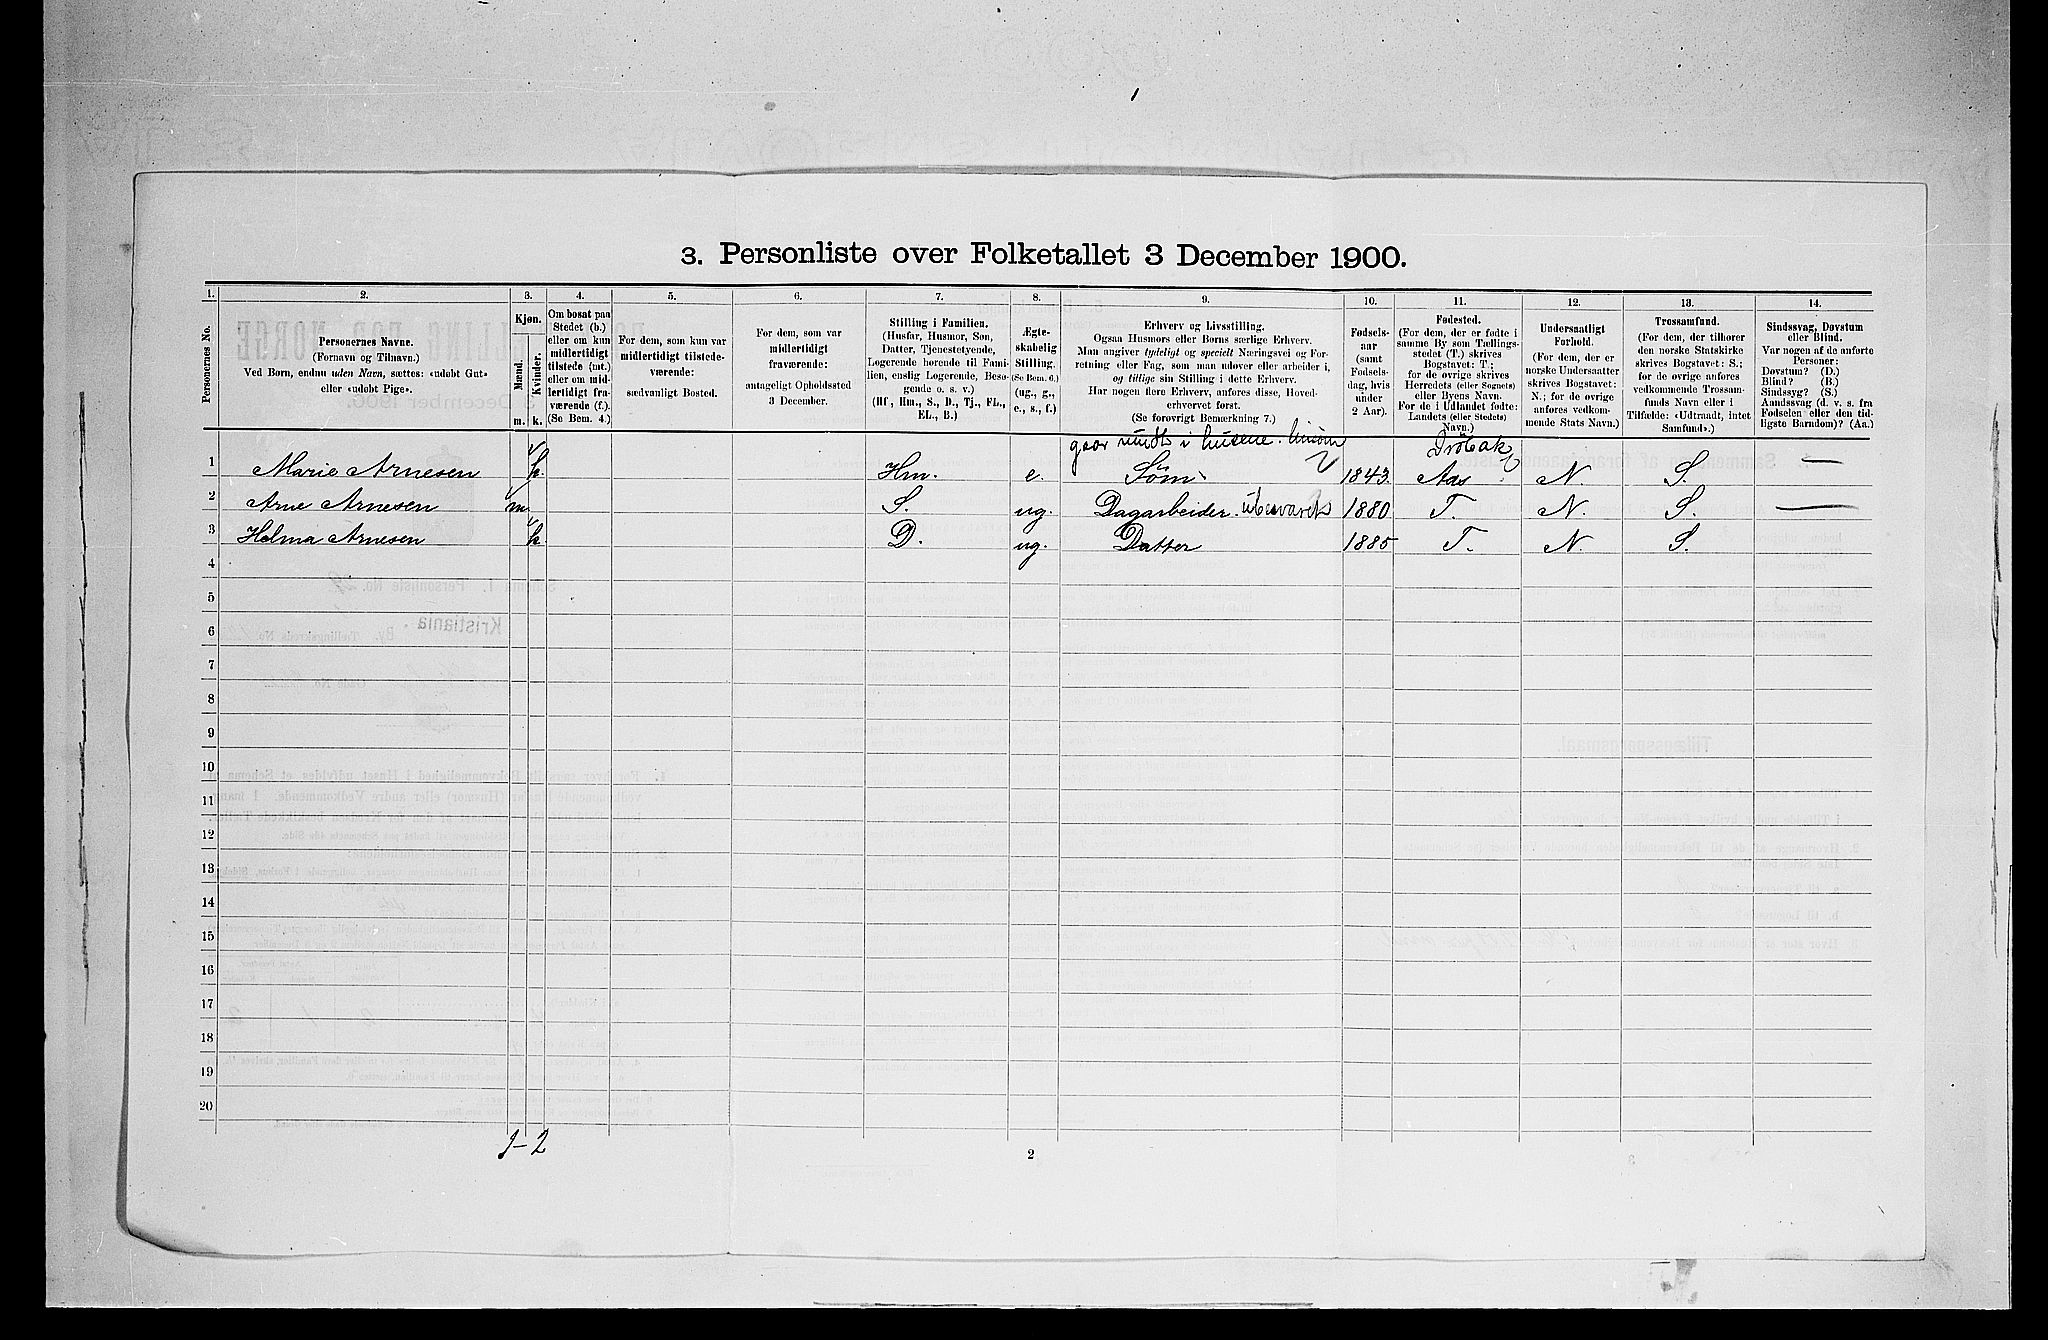 3. Personliste over Folketallet 3 December 1900.
1. 2. 3. 4. 5. 6. 7. 8. 9. 10. 11. 12. 13. 14.
Personernes No.
Personernes Navne.
(Fornavn og Tilnavn.)
Ved Børn, endnu uden Navn, sættes: «udøbt Gut»
eller «udøbt Pige».
Kjøn.
Mænd.
Kvinder.
m. k.
Om bosat paa
Stedet (b.)
eller om kun
midlertidigt
tilstede (mt.)
eller om mid-
lertidigt fra-
værende (f.).
(Se Bem. 4.)
For dem, som kun var
midlertidigt tilstede-
værende:
sædvanligt Bosted.
For dem, som var
midlertidigt
fraværende:
antageligt Opholdssted
3 December.
Stilling i Familien.
(Husfar, Husmor, Søn,
Datter, Tjenestetyende,
Logerende hørende til Fami-
lien, enslig Logerende, Besø-
gende o. s. v.)
(Hf, Hm., S., D., Tj., FL.,
EL., B.)
Ægte-
skabelig
Stilling.
(Se Bem. 6.)
(ug., g.,
e., s., f.)
Erhverv og Livsstilling.
Ogsaa Husmors eller Børns særlige Erhverv.
Man angiver tydeligt og specielt Næringsvei og For-
retning eller Fag, som man udøver eller arbeider i,
og tillige sin Stilling i dette Erhverv.
Har nogen flere Erhverv, anføres disse, Hoved-
erhvervet først.
(Se forøvrigt Bemærkning 7.)
Fødsels-
aar
(samt
Fødsels-
dag, hvis
under
2 Aar).
Fødested.
(For dem, der er fødte i
samme By som Tællings-
stedet (T.) skrives
Bogstavet: T.;
for de øvrige skrives
Herredets (eller Sognets)
eller Byens Navn.
For de i Udlandet fødte:
Landets (eller Stedets)
Navn.)
Undersaatligt
Forhold.
(For dem, der er
norske Undersaatter
skrives Bogstavet:
N.; for de øvrige
anføres vedkom-
mende Stats Navn.)
Trossamfund.
(For dem, der tilhører
den norske Statskirke
skrives Bogstavet: S.;
for de øvrige anføres
vedkommende Trossam-
funds Navn eller i
Tilfælde: «Udtraadt, intet
Samfund».)
Sindssvag, Døvstum
eller Blind.
Var nogen af de anførte
Personer:
Døvstum? (D.)
Blind? (B.)
Sindssyg? (S.)
Aandssvag (d. v. s. fra
Fødselen eller den tid-
ligste Barndom)? (Aa.)
gaar rundt i husene. Drøbak
1 Marie Arnesen k. Hm. e. Søm 1843. Aas N. S. —
2 Arne Arnesen m. S. ug. Dagarbeider. 1880 T. N. S. —
3 Helma Arnesen k. D. ug. Datter 1885 T. N. S.
4
5
6
7
8
9
10
11
12
13
14
15
16
17
18
19
20
1-2
2